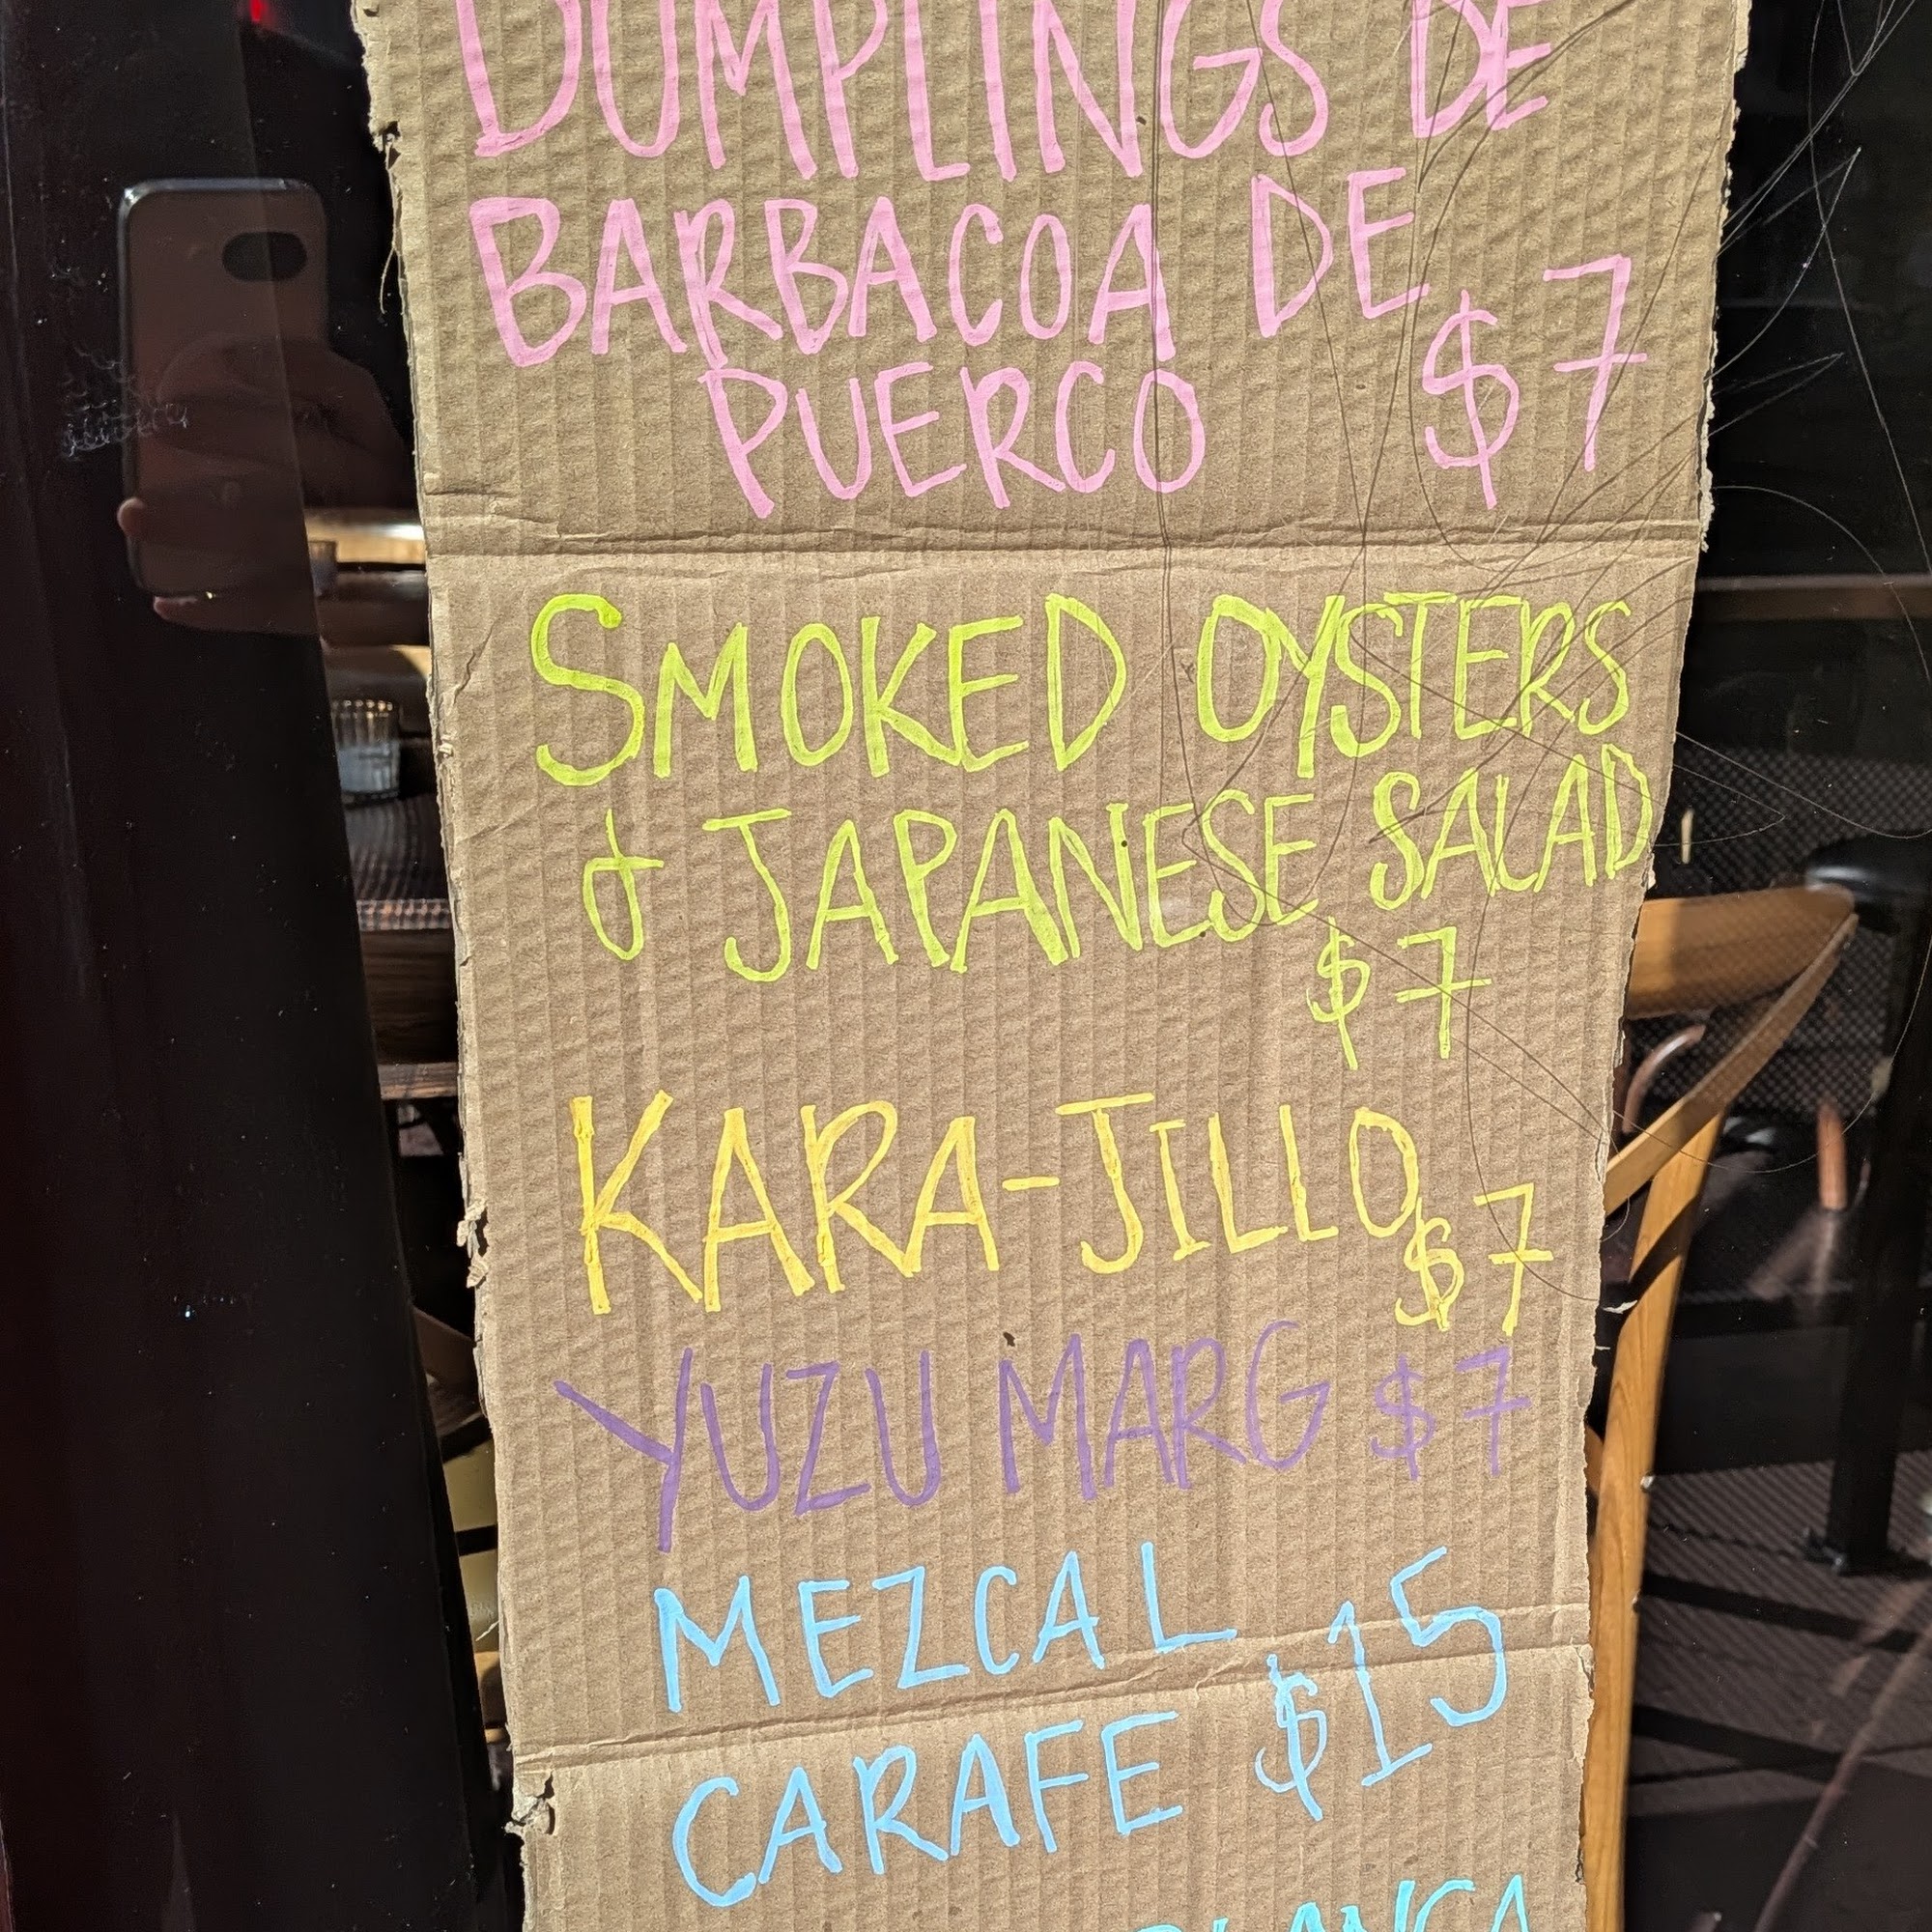 DUMPLINGS DE
BARBACOA DE
PUERCO $7
SMOKED OYSTERS
& JAPANESE SALAD
$7
KARA-JILLO $7
YUZU MARG $7
MEZCAL
CARAFE $15